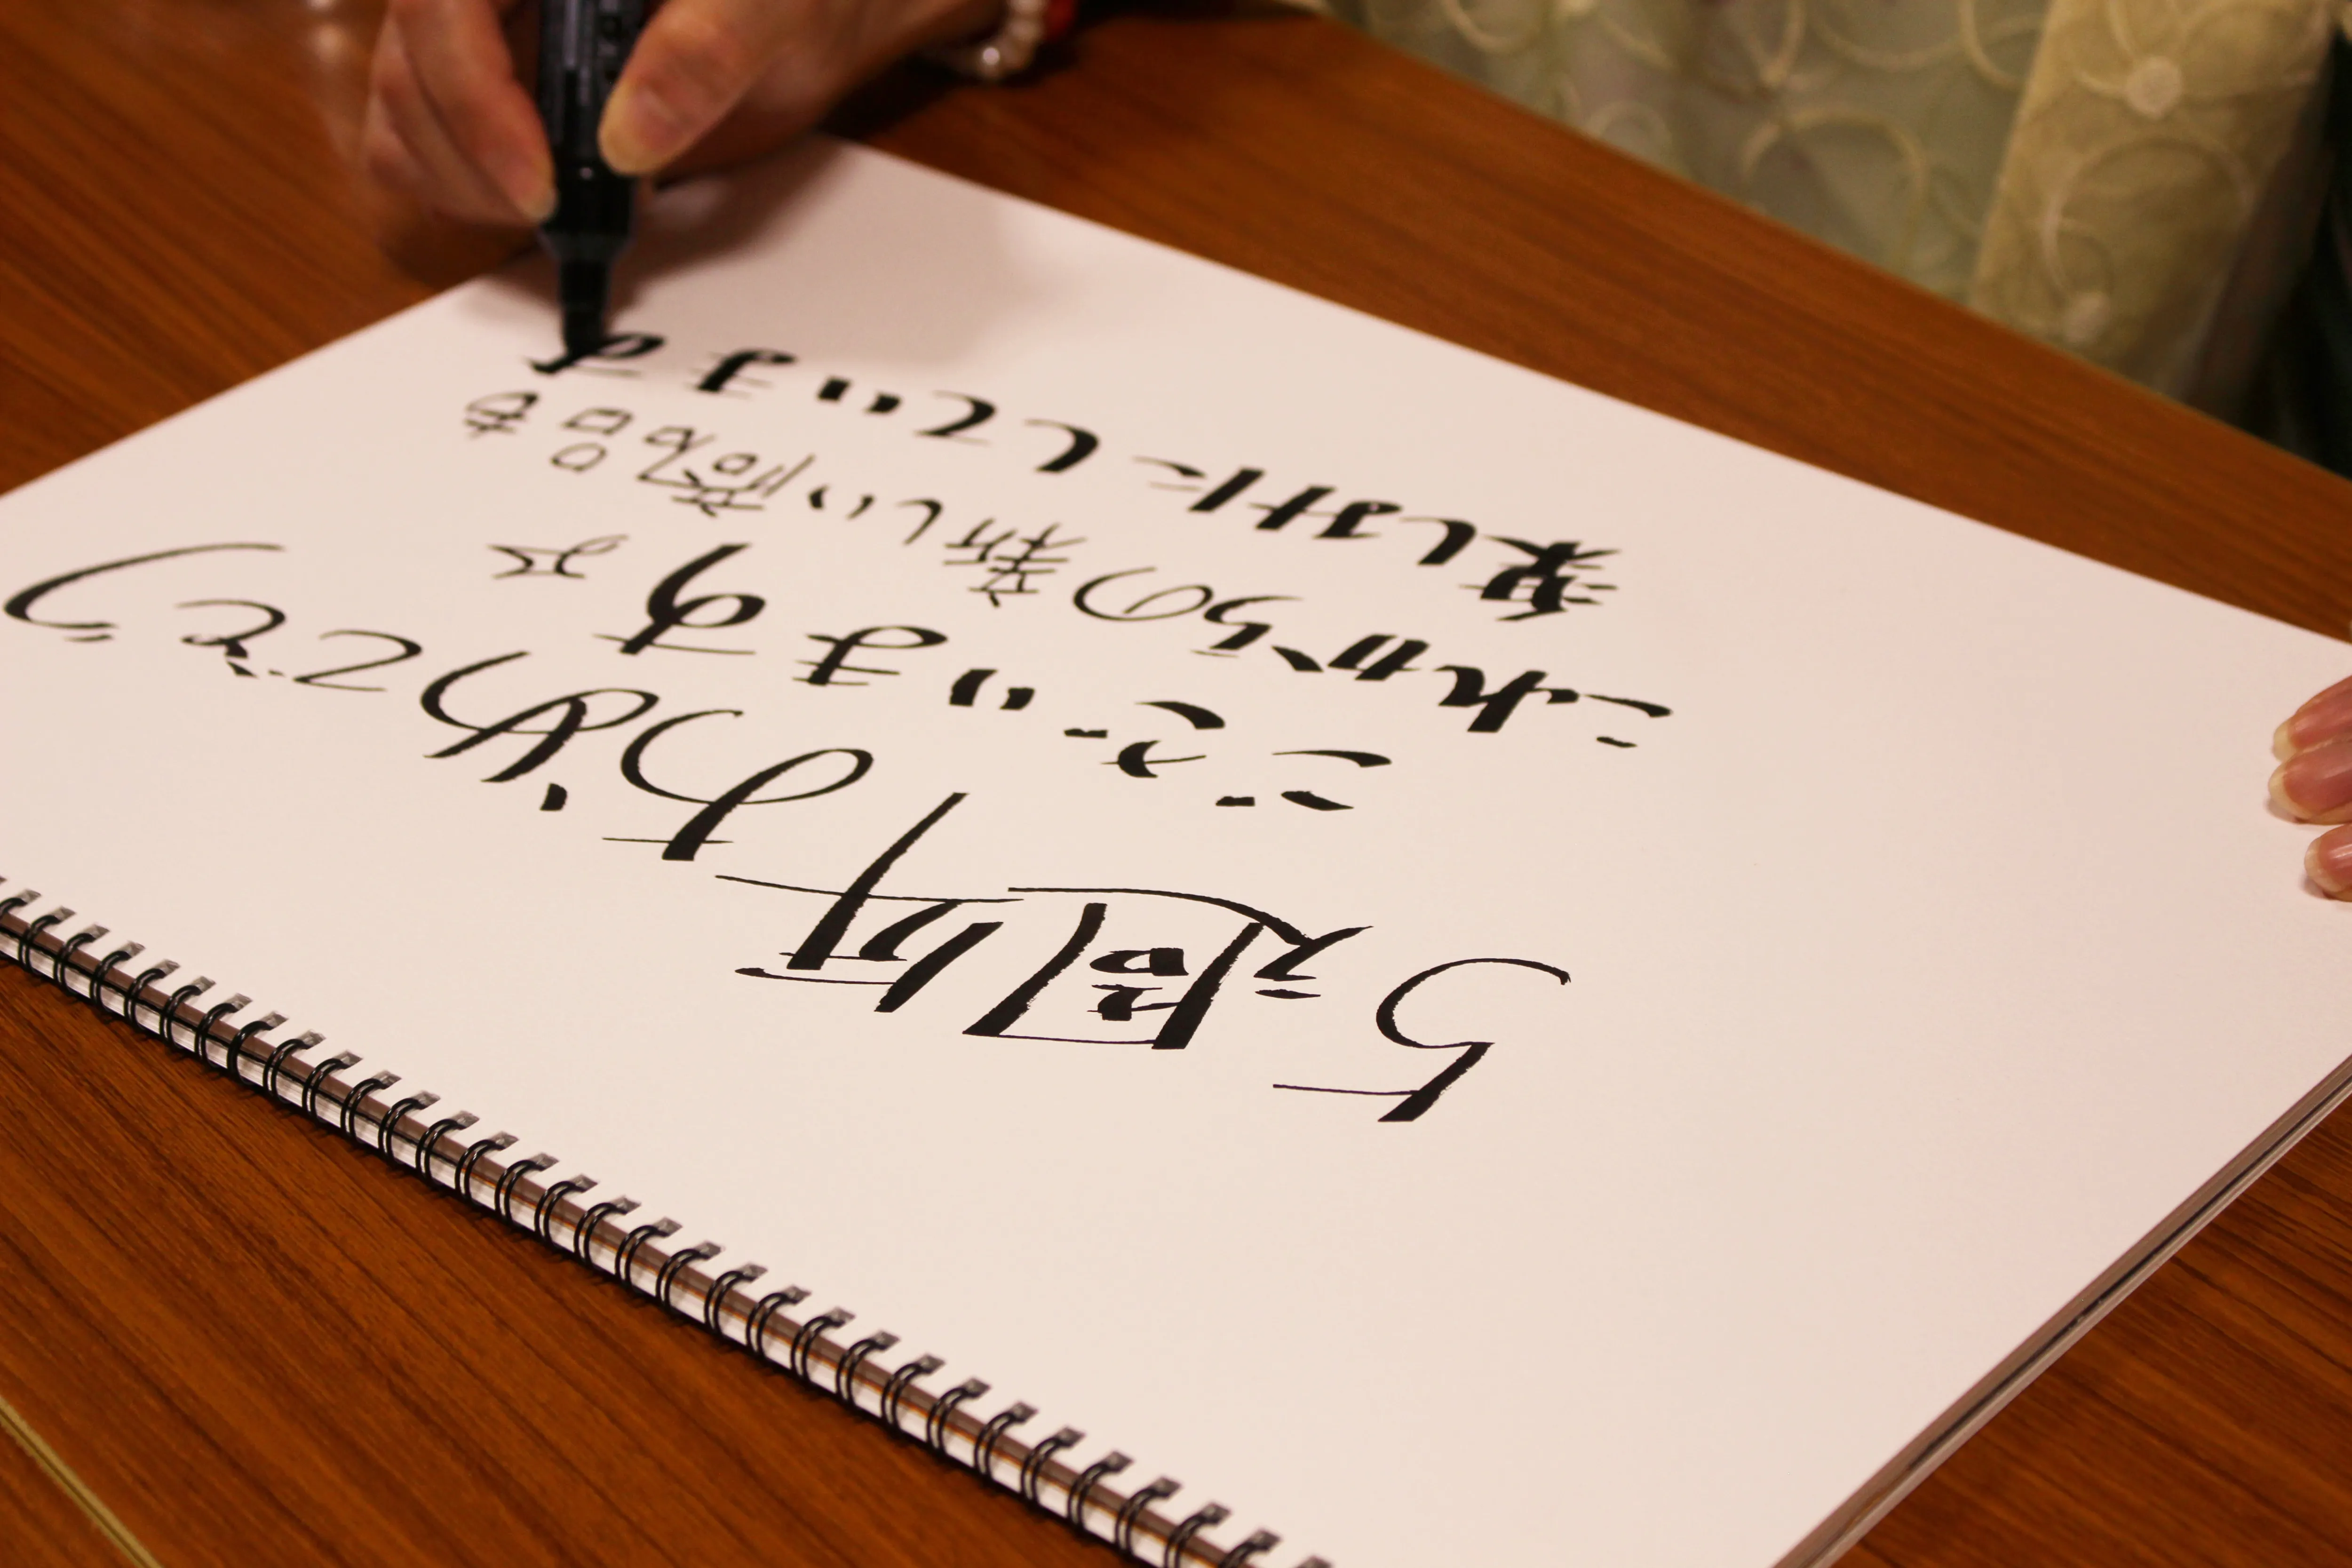 5周年おめでとう
ございます☆
これからの新しい商品も
楽しみにしています